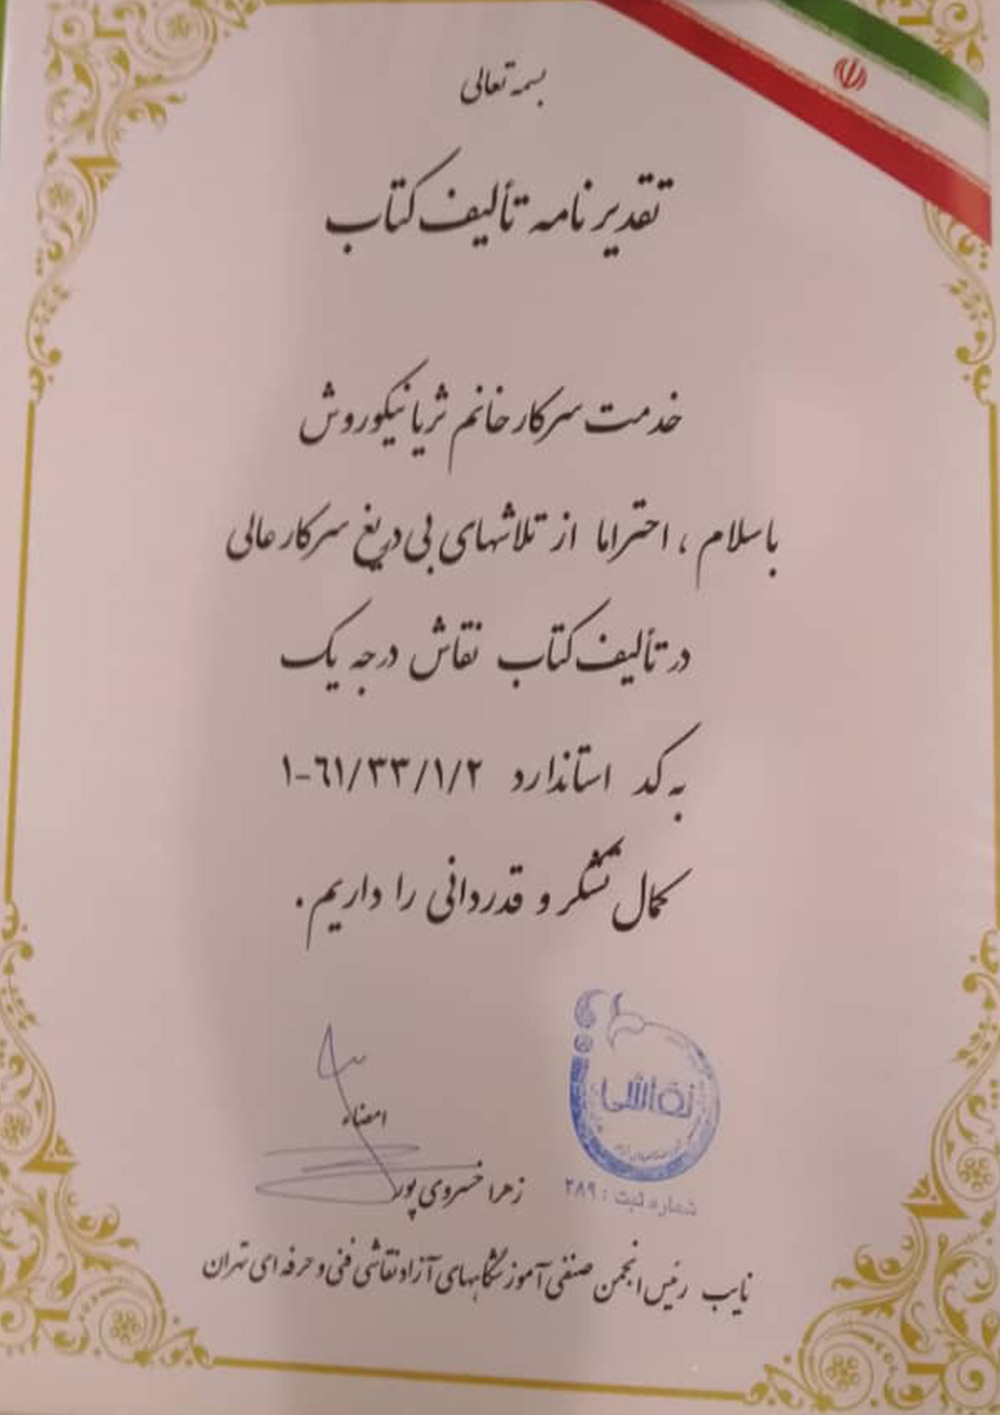 بسمه تعالی
تقدیر نامه تألیف کتاب
خدمت سرکار خانم ثریا نیکوروش
با سلام ، احتراما از تلاشهای بی دریغ سرکار عالی
در تألیف کتاب نقاش درجه یک
به کد استاندارد ۱-۶۱/۳۳/۱/۲
کمال تشکر و قدردانی را داریم .
نقاشی
شماره ثبت : ۲۸۹
امضاء
زهرا خسروی پور
نایب رئیس انجمن صنفی آموزشگاههای آزاد نقاشی فنی و حرفه ای تهران